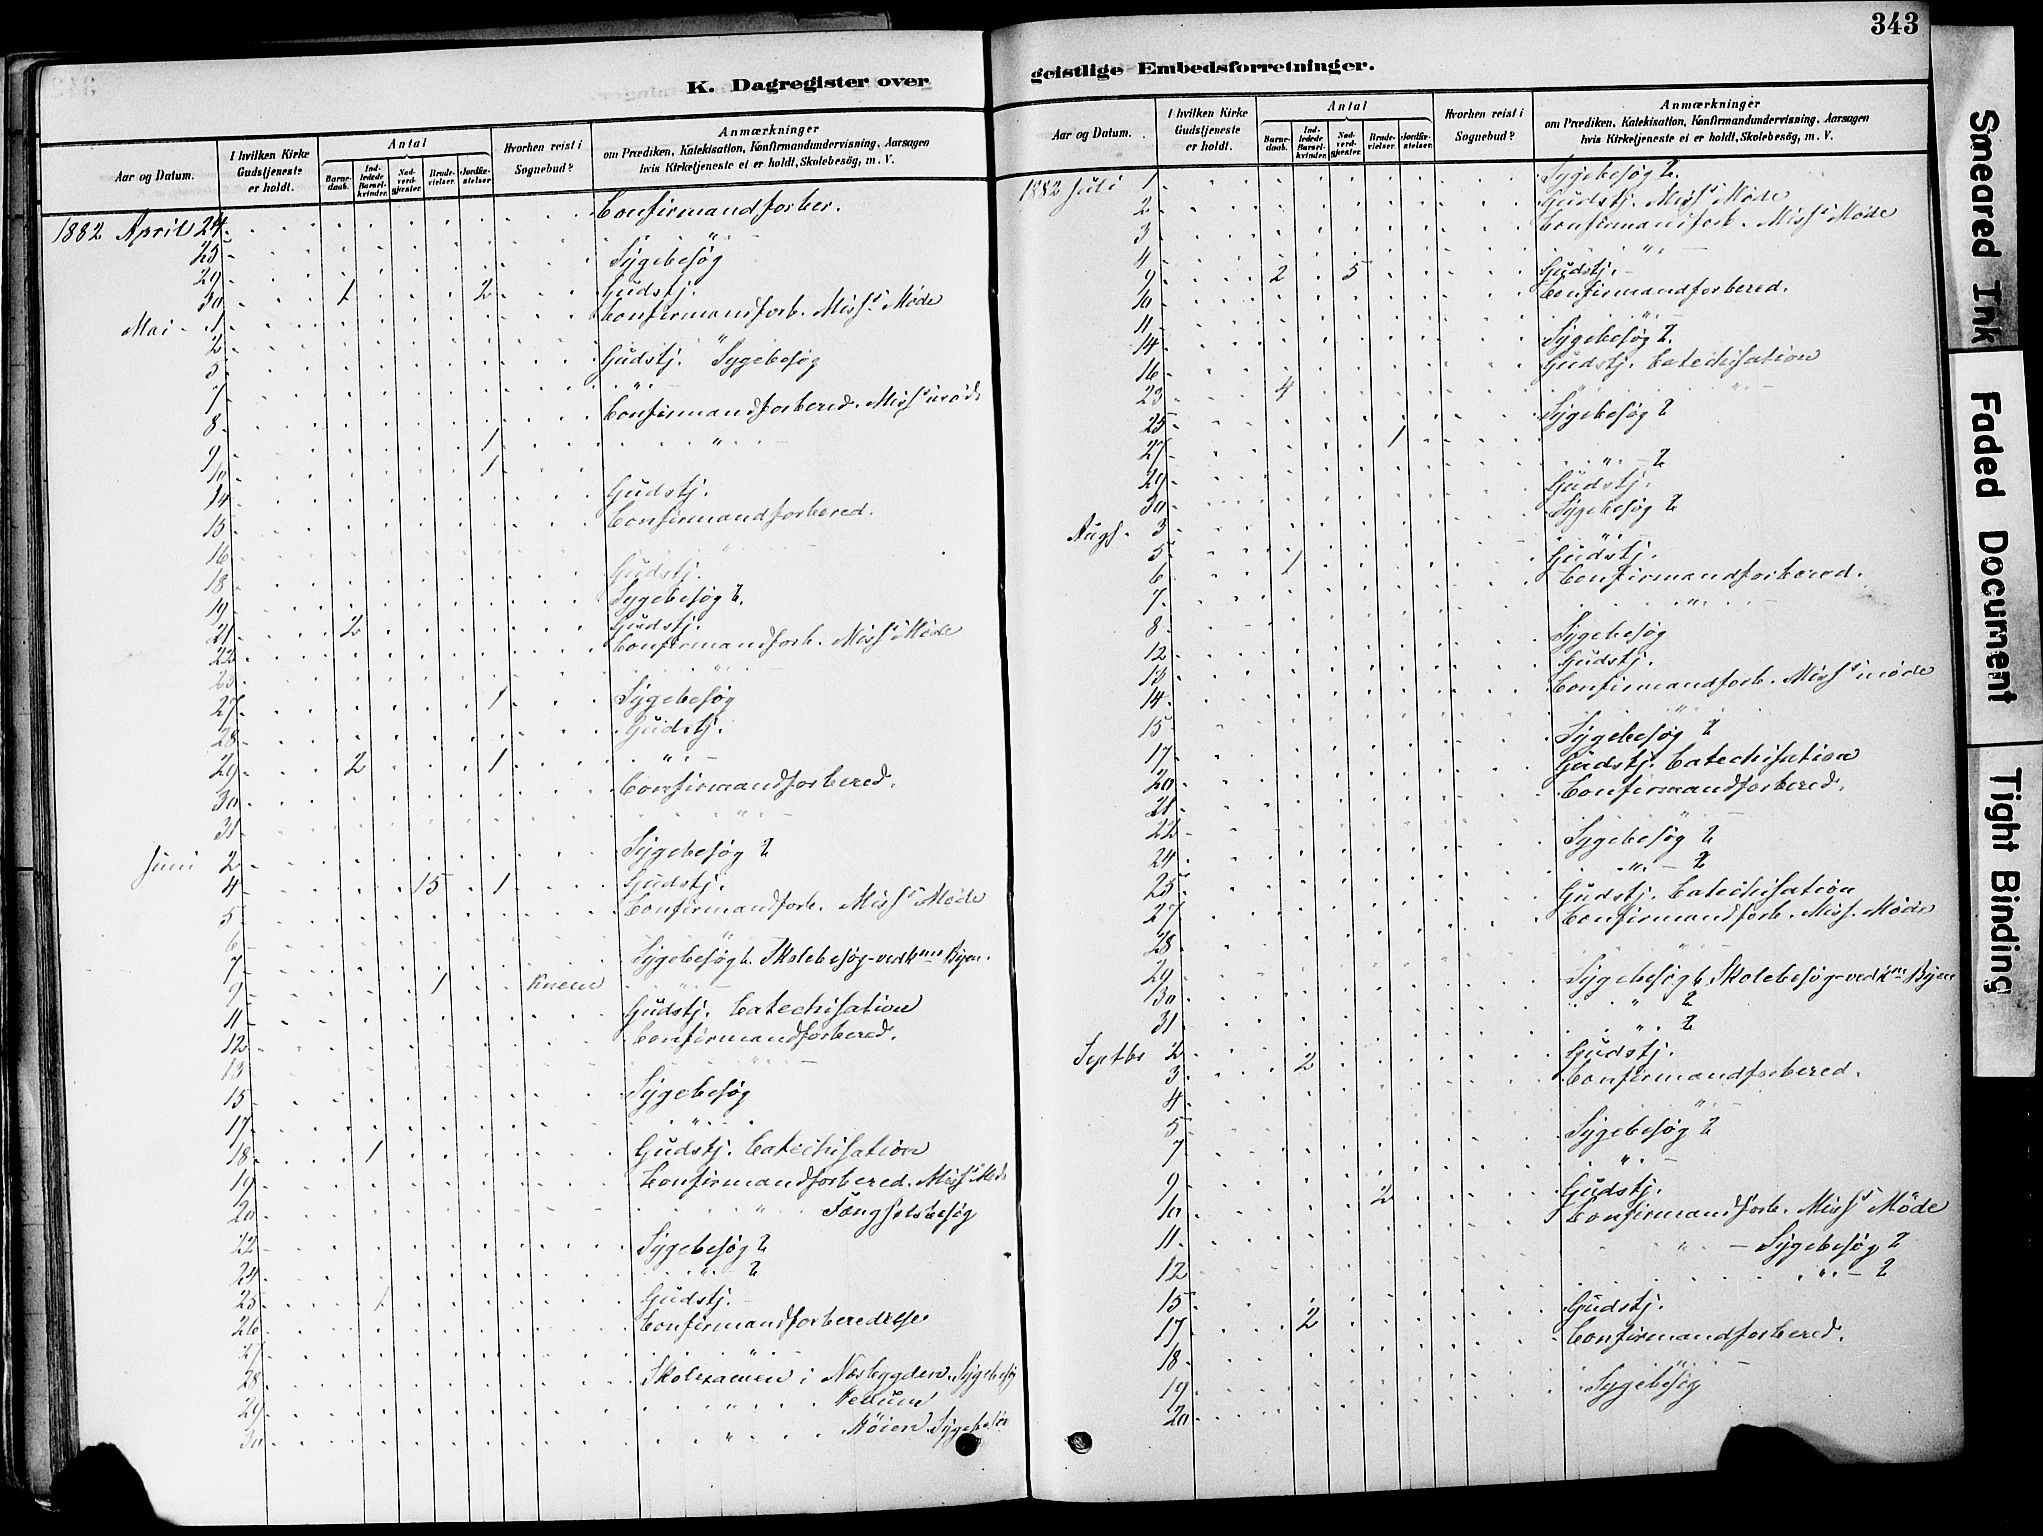 343
K. Dagregister over
geistlige Embedsforretninger.
Aar og Datum.
I hvilken Kirke Gudstjeneste er holdt.
Antal
Barnedaab.
Indledede Barselkvinder.
Nadverdgjester.
Brudevielser.
Jordfæstelser.
Hvorhen reist i Sognebud?
Anmærkninger
om Prædiken, Katekisation, Konfirmandundervisning, Aarsagen
hvis Kirketjeneste ei er holdt, Skolebesög, m. V.
1882 April 24 Confirmandforber.
25 "
29 Sygebesøg
30 1 2 Gudstj.
Mai 1 Confirmandforb. Miss. Møde
2 "
5 Gudstj. Sygebesøg
7 "
8 Confirmandforbered. Miss. møde
9 1 "
10 1
14 Gudstj.
15 Confirmandforbered.
16 "
18 Gudstj.
19 Sygebesøg 2.
21 2 Gudstj.
22 Confirmandforb. Miss. Møde
23 "
27 1 Sygebesøg
28 Gudstj.
29 2 1 "
30 Confirmandforbered.
31 "
Juni 2 Sygebesøg 2
4 15 1 Gudstj.
5 Confirmandforb. Miss. Møde
6 "
7 Sygebesøg 2. Skolebesøg
9 1 "
11 Gudstj. Catechisation
12 Confirmandforbered.
13 "
15 Sygebesøg
17 "
18 1 Gudstj. Catechisation
19 Confirmandforbered. Miss. Mød.
20 " Fængselsbesøg
22 Sygebesøg 2
24 " 2
25 1 Gudstj.
26 Confirmandforberedelse
27 "
28 Skolexamen i Næsbygden. Sygebesøg
29 "
30 " Høien. Sygebesøg
Aar og Datum.
I hvilken Kirke Gudstjeneste er holdt.
Antal
Barnedaab.
Indledede Barselkvinder.
Nadverdgjester.
Brudevielser.
Jordfæstelser.
Hvorhen reist i Sognebud?
Anmærkninger
om Prædiken, Katekisation, Konfirmandundervisning, Aarsagen
hvis Kirketjeneste ei er holdt, Skolebesög, m. V.
1882 Juli 1 Sygebesøg 2.
2 Gudstj. Miss. Møde
3 Confirmandforb. Miss. Møde
4 "
9 2 5 Gudstj.
10 Confirmandforbered.
11 "
14 Sygebesøg 2.
16 Gudstj. Catechisation
23 4 " "
25 Sygebesøg 2
27 1
29 " 2
30 Gudstj.
Augs. 3 Sygebesøg 2
5 "
6 1 Gudstj.
7 Confirmandforbered.
8 "
12 Sygebesøg
13 Gudstj.
14 Confirmandforb. Miss. møde
15 "
17 Sygebesøg 2
20 Gudstj. Catechisation
21 Confirmandforbered.
22 "
24 Sygebesøg 2
25 " 2
27 Gudstj. Catechisation
28 Confirmandforb. Miss. Møde
29 "
30 Sygebesøg 2. Skolebesøg
31 " 2
Septbr 2 " 2
3 2 Gudstj.
4 Confirmandforbered.
5 "
7 Sygebesøg 2
9 "
10 2 Gudstj.
11 Confirmandforb. Miss. Møde
12 " Sygebesøg 2
15 " 2
17 2 Gudstj.
18 Confirmandforbered.
19 "
20 Sygebesøg
Smeared Ink
Faded Document
Tight Binding